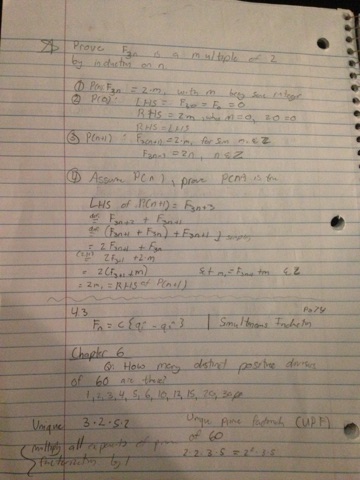 Prove F3n is a multiple of 2
by induction on n.
① P(n): F3n = 2·m, with m being some integer
② P(0): LHS = F3·0 = F0 = 0
RHS = 2m, when m=0, 2·0=0
RHS = LHS
③ P(n+1): F3(n+1) = 2·m, for some m ∈ Z
F3n+3 = 2m, m ∈ Z
④ Assume P(n), prove P(n+1) is true
LHS of P(n+1) = F3n+3
= F3n+2 + F3n+1
= (F3n+1 + F3n) + F3n+1
= 2F3n+1 + F3n
= 2F3n+1 + 2·m
= 2(F3n+1 + m)
= 2m, = RHS of P(n+1)
4.3
Simultaneous Induction
Chapter 6
Q: How many distinct positive divisors
of 60 are there?
1, 2, 3, 4, 5, 6, 10, 12, 15, 20, 30, 60
Unique 3·2·5·2
Unique Prime Factorization (UPF)
of 60
multiply all exponents of prime
factorization by 1
2·2·3·5 = 2²·3·5